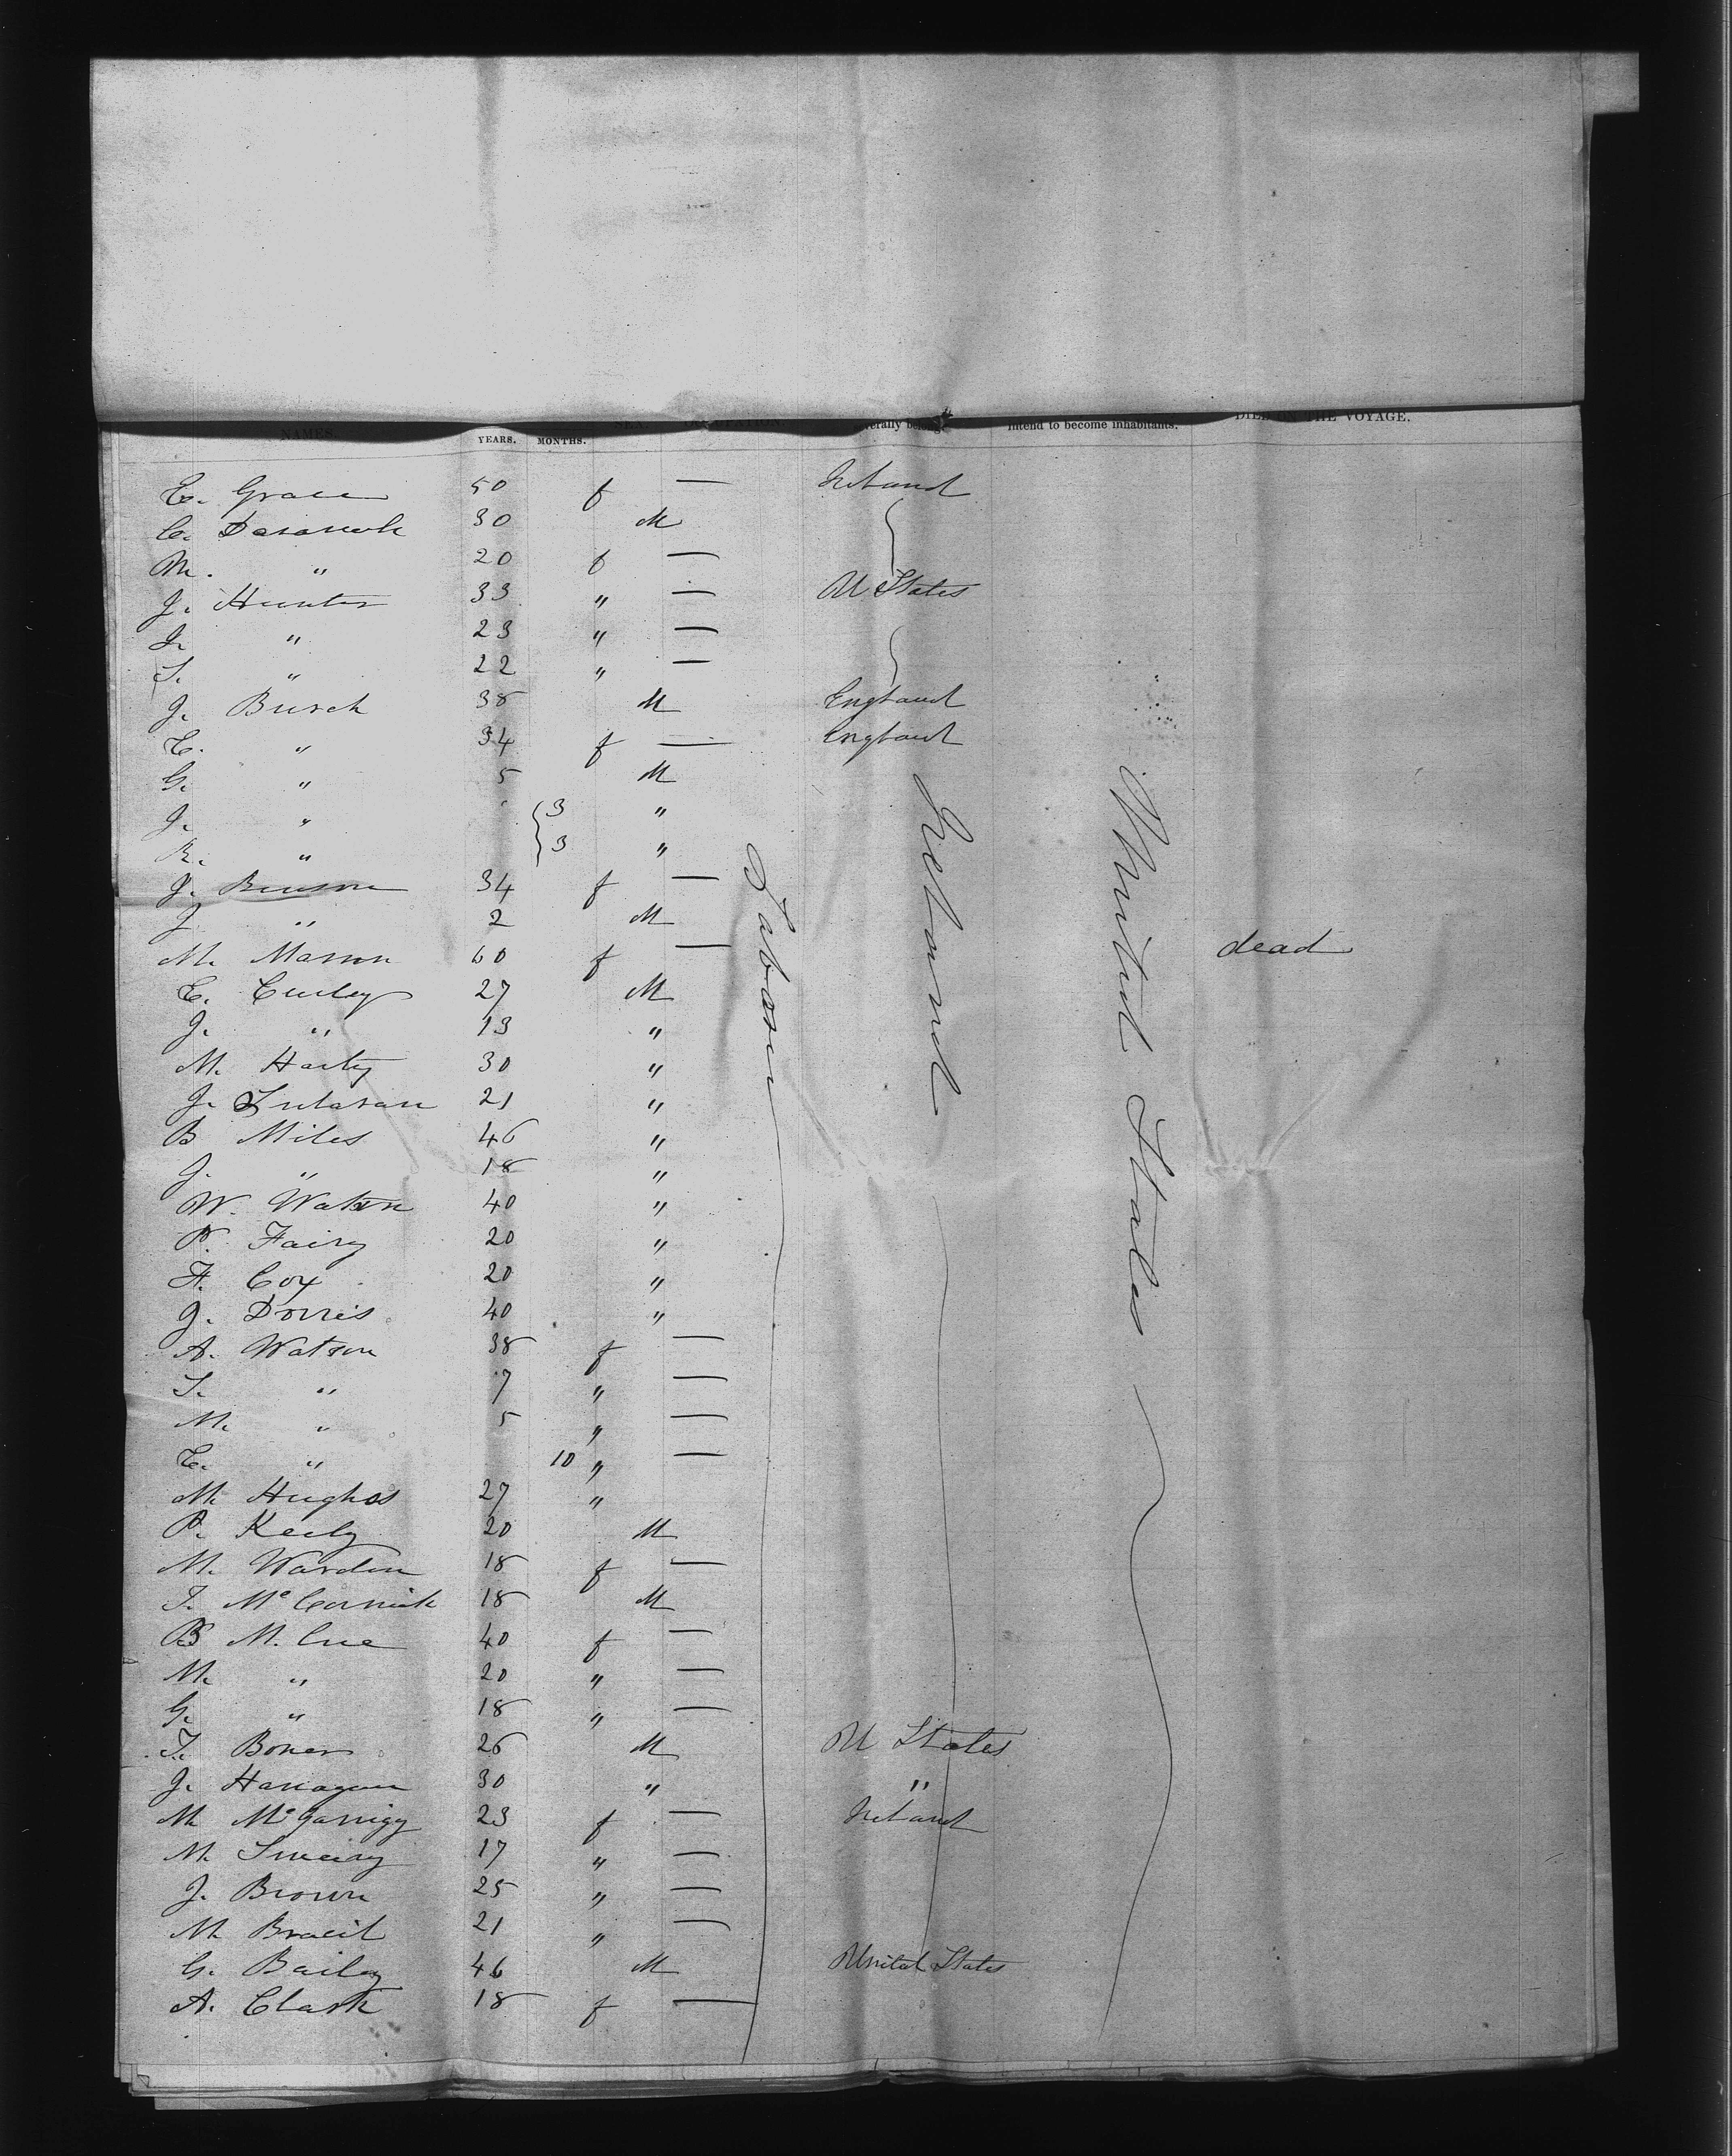 NAMES. YEARS. MONTHS. SEX. OCCUPATION. severally belong intend to become inhabitants. DIED ON THE VOYAGE.
E. Grace 50 f — Ireland
C. 30 M
M. " 20 f —
J. Hunter 33 " — U States
J. " 23 " —
S. " 22 " —
J. Busch 38 M England
E. " 34 f — England
G. " 5 M
J. " 3 "
R. " 3 "
J. Benson 34 f —
J " 2 M
M. Mason 60 f — dead
E. Curley 27 M
J. " 13 "
M. Harty 30 "
J. 21 "
B Miles 46 "
J. " 18 "
W. Watson 40 "
P. Fairy 20 "
F. Cox 20 "
J. Dorris 40 "
A. Watson 38 f —
S. " 7 " —
M. " 5 " —
E. " 10 " —
M. Hughes 27 "
P. Keely 20 M
M. Warden 18 f —
T. McCormick 18 M
B M. Cue 40 f —
M. " 20 " —
G. " 18 " —
T. Bones 26 M U States
J. Hanagan 30 M "
M McGarrigy 23 f — Ireland
M. Sweeny 17 " —
J. Brown 25 " —
M 21 " —
G. Bailey 46 M United States
A. Clark 18 f —
Labourer
Ireland
United States